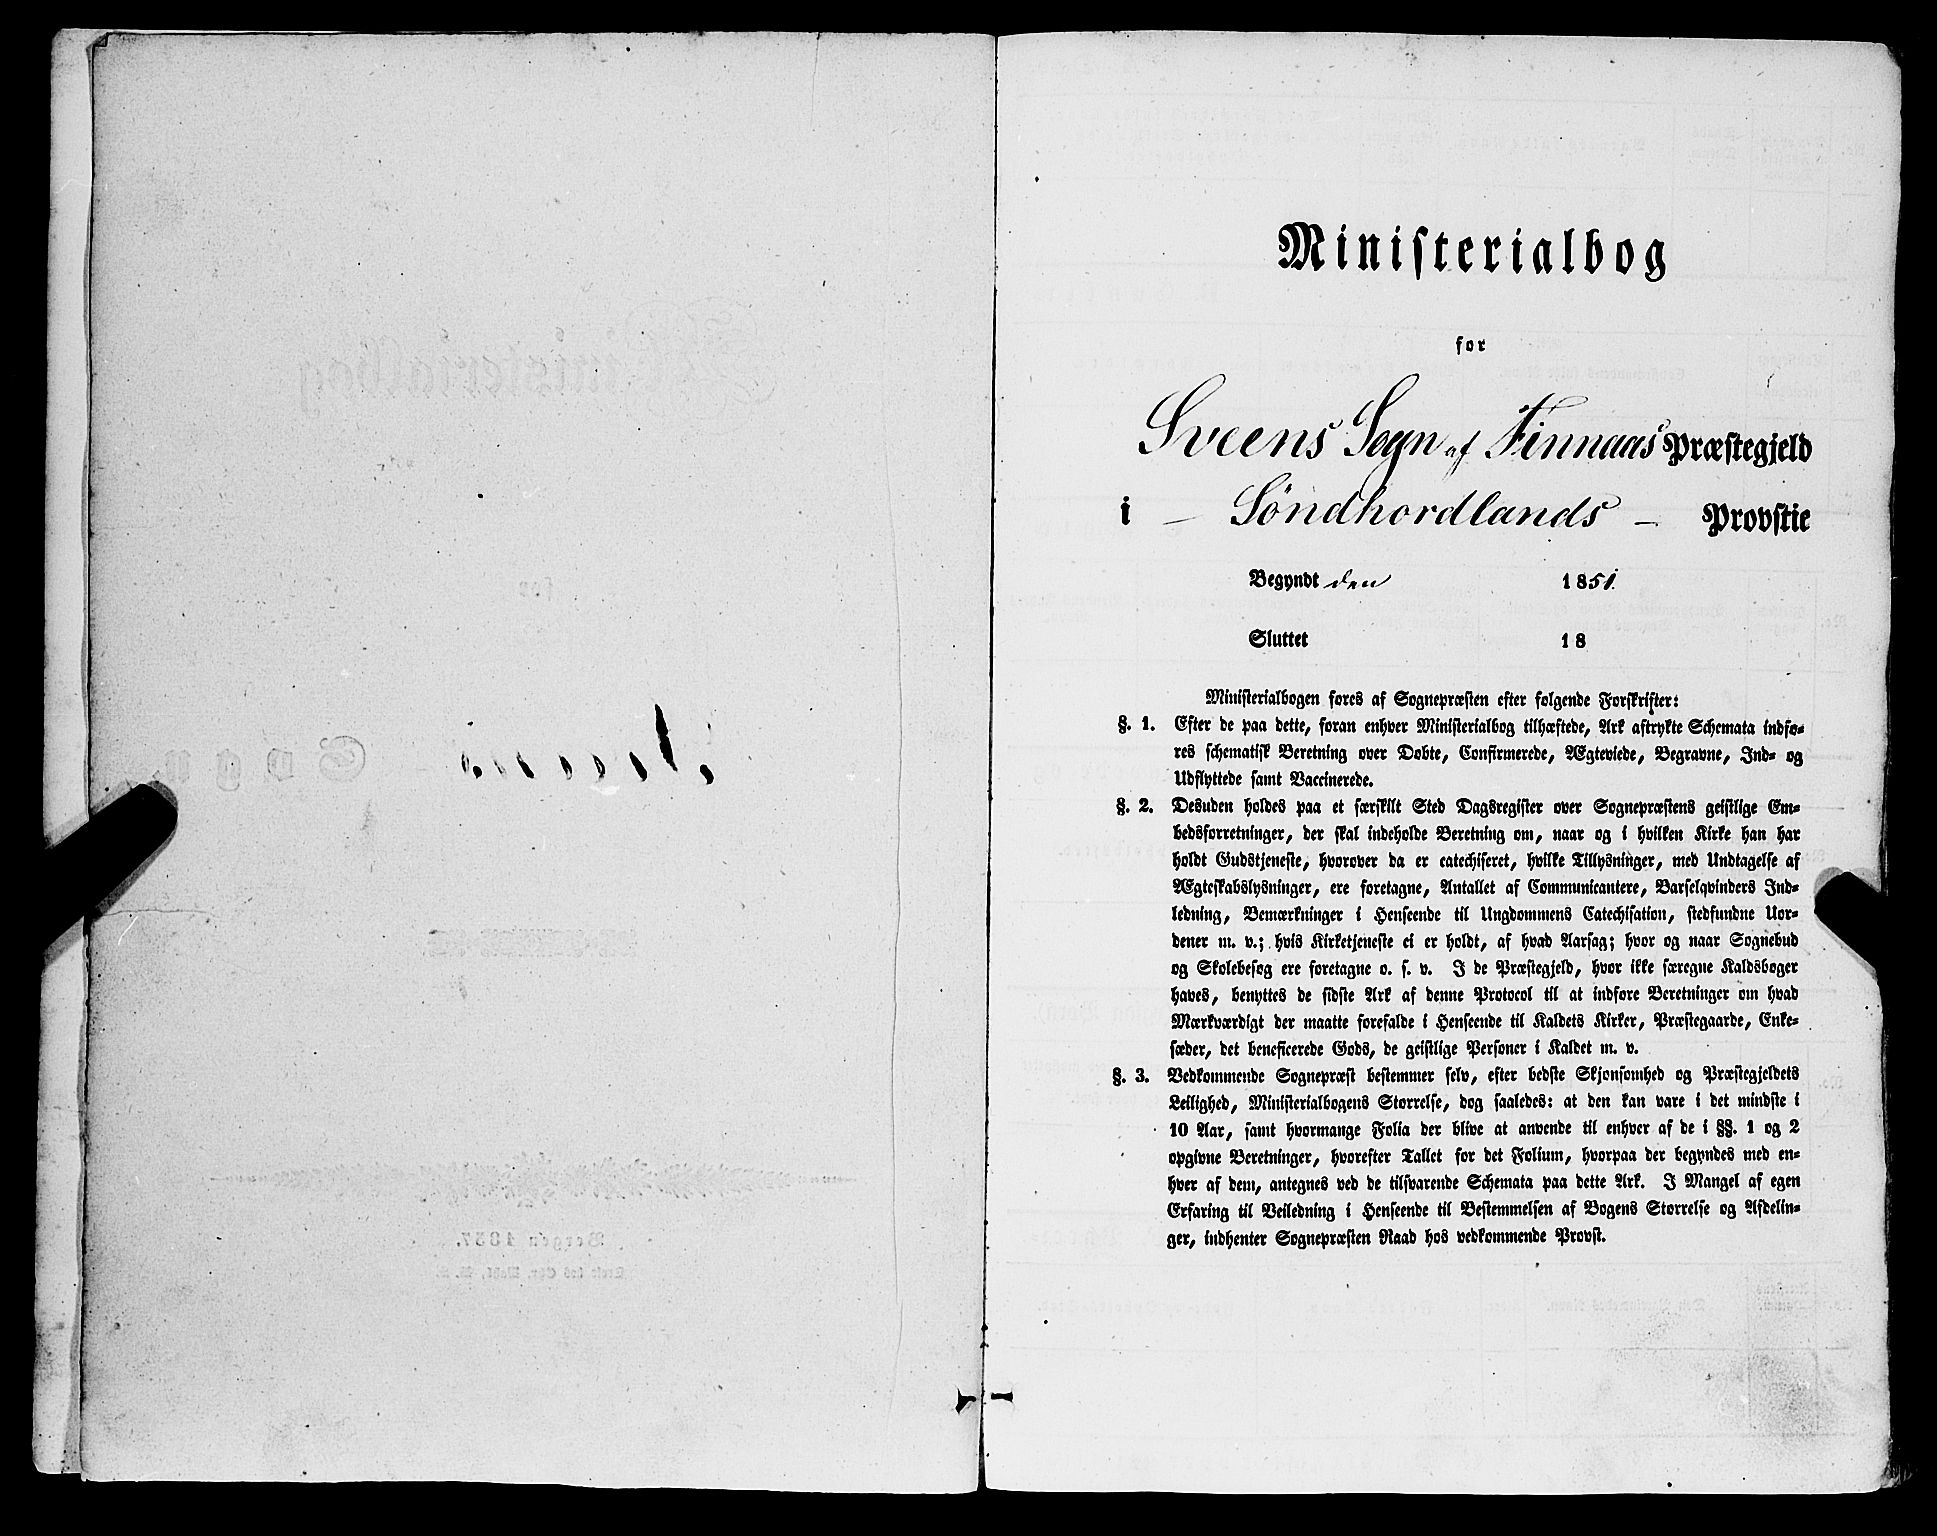 Ministerialbog
for
Sveens Sogn af Finnaas Præstegjeld
i — Söndhordlands — Provstie
Begyndt den 1851.
Sluttet 18
Ministerialbogen føres af Sognepræsten efter følgende Forskrifter:
§. 1. Efter de paa dette, foran enhver Ministerialbog tilhæftede, Ark aftrykte Schemata indfø-
res schematisk Beretning over Døbte, Confirmerede, Ægteviede, Begravne, Ind- og
Udflyttede samt Vaccinerede.
§. 2. Desuden holdes paa et særskilt Sted Dagsregister over Sognepræstens geistlige Em-
bedsforretninger, der skal indeholde Beretning om, naar og i hvilken Kirke han har
holdt Gudstjeneste, hvorover da er catechiseret, hvilke Tillysninger, med Undtagelse af
Ægteskabslysninger, ere foretagne, Antallet af Communicantere, Barselqvinders Ind-
ledning, Bemærkninger i Henseende til Ungdommens Catechisation, stedfundne Uor-
dener m. v.; hvis Kirketjeneste ei er holdt, af hvad Aarsag; hvor og naar Sognebud
og Skolebesøg ere foretagne o. s. v. I de Præstegjeld, hvor ikke særegne Kaldsbøger
haves, benyttes de sidste Ark af denne Protocol til at indføre Beretninger om hvad
Mærkværdigt der maatte forefalde i Henseende til Kaldets Kirker, Præstegaarde, Enke-
sæder, det beneficerede Gods, de geistlige Personer i Kaldet m. v.
§. 3. Vedkommende Sognepræst bestemmer selv, efter bedste Skjønsomhed og Præstegjeldets
Leilighed, Ministerialbogens Størrelse, dog saaledes: at den kan vare i det mindste i
10 Aar, samt hvormange Folia der blive at anvende til enhver af de i §§. 1 og 2
opgivne Beretninger, hvorefter Tallet for det Folium, hvorpaa der begyndes med en-
hver af dem, antegnes ved de tilsvarende Schemata paa dette Ark. I Mangel af egen
Erfaring til Veiledning i Henseende til Bestemmelsen af Bogens Størrelse og Afdelin-
ger, indhenter Sognepræsten Raad hos vedkommende Provst.